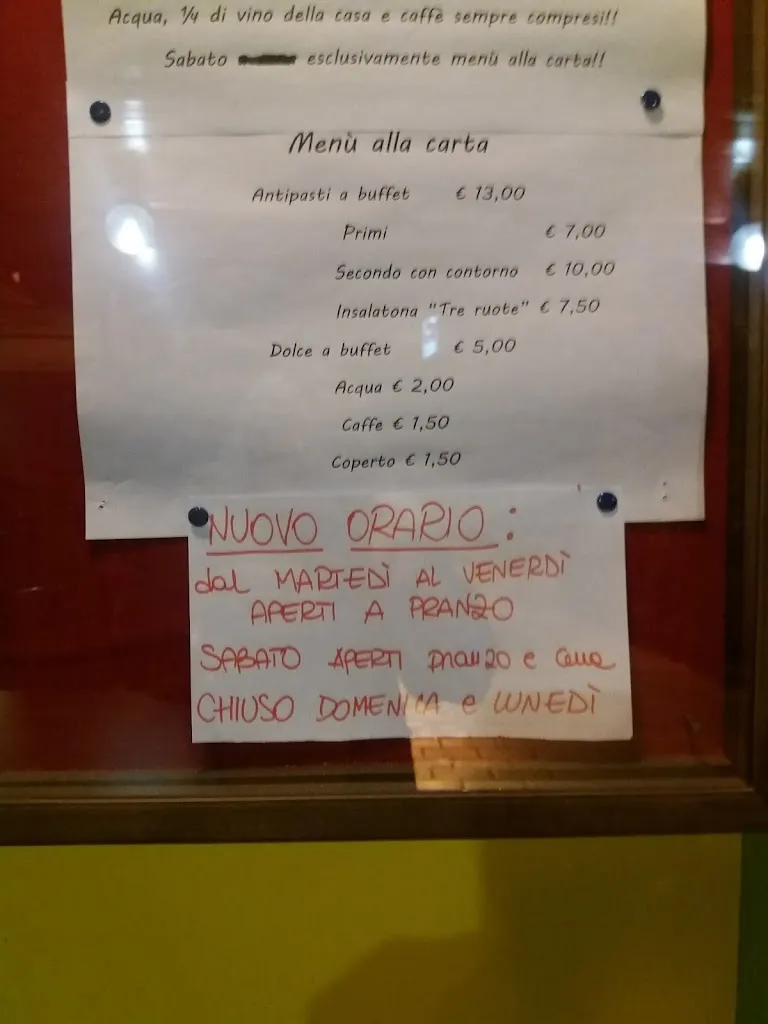 Acqua, ¼ di vino della casa e caffè sempre compresi!!
Sabato esclusivamente menù alla carta!!
Menù alla carta
Antipasti a buffet € 13,00
Primi € 7,00
Secondo con contorno € 10,00
Insalatona "Tre ruote" € 7,50
Dolce a buffet € 5,00
Acqua € 2,00
Caffe € 1,50
Coperto € 1,50
NUOVO ORARIO:
dal MARTEDÌ AL VENERDÌ
APERTI A PRANZO
SABATO APERTI pranzo e cena
CHIUSO DOMENICA e LUNEDÌ